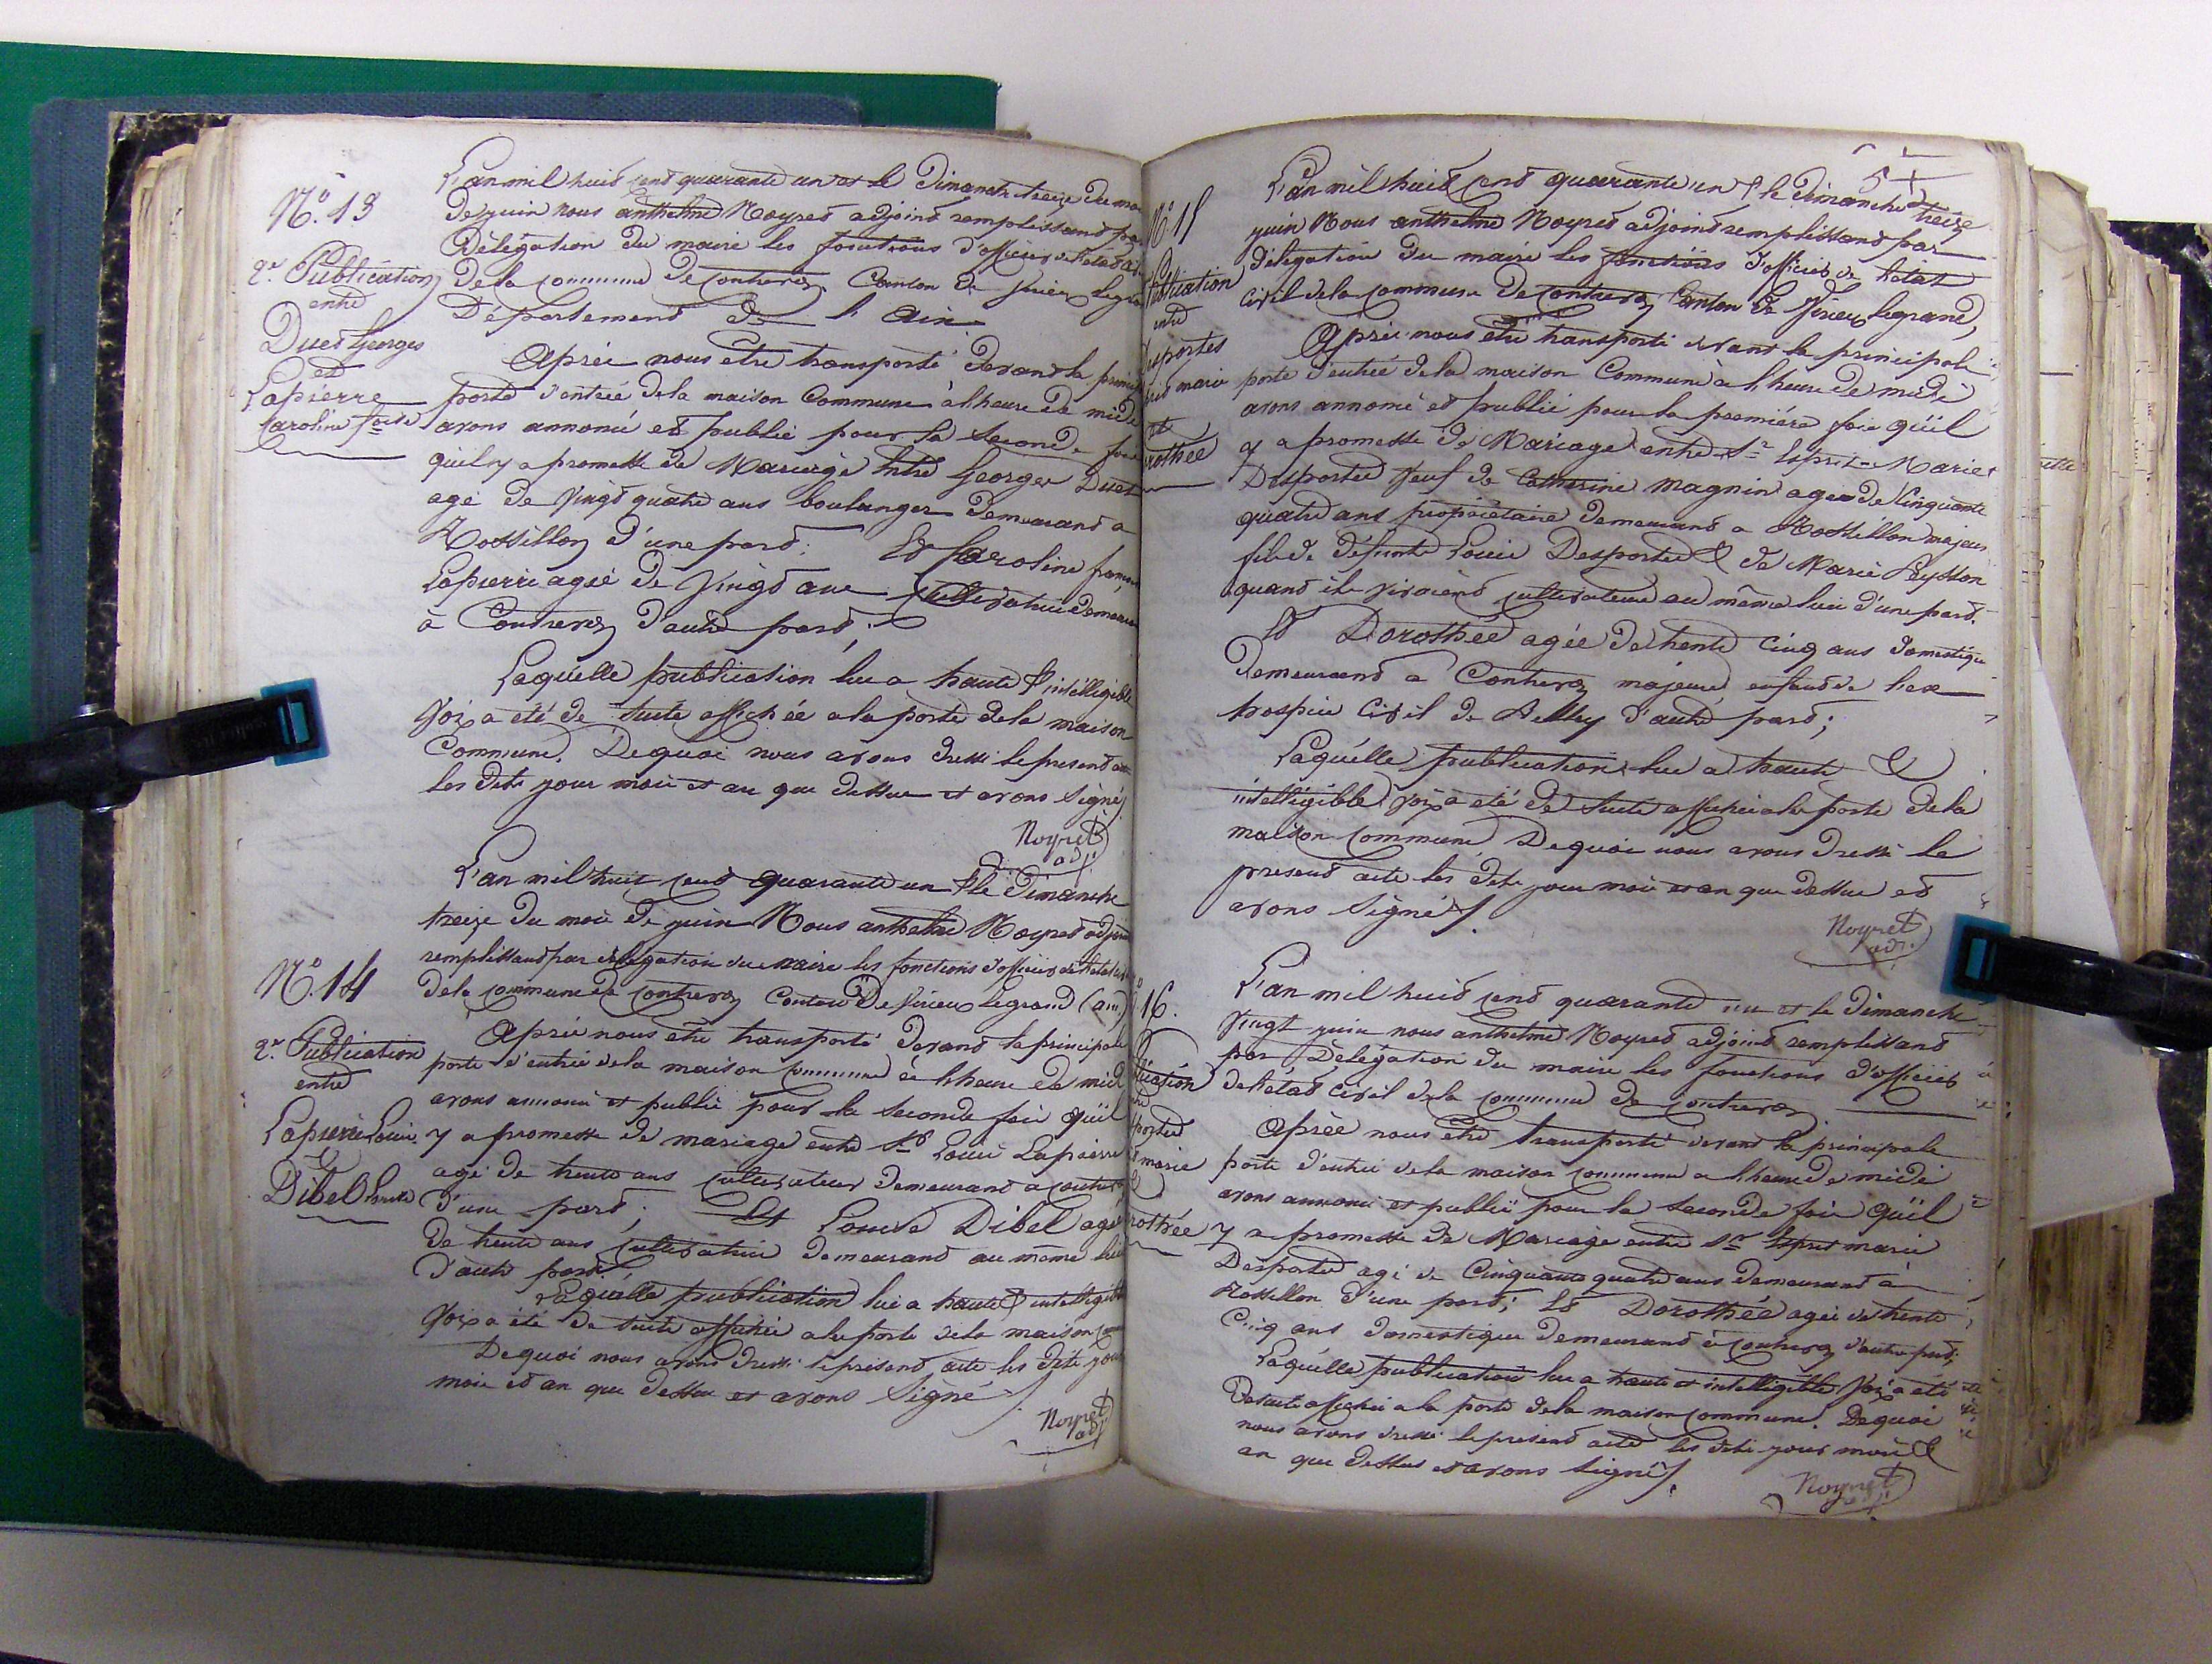 N.º 13
2.e Publication
entre
Duet Georges
et
Lapierre
Caroline f.oise
L'an mil huit cent quarante un et le Dimanche treize du mo
de juin nous anthelme Noyret adjoint remplissant par
Délégation du maire les fonctions d'officier de l'état
de la commune de contrevoz Canton de Virieu legra
Département de l'Ain
Après nous être transporté devant la princip
porte d'entrée de la maison Commune à l'heure de midi
avons annoncé et publié pour la seconde fois
qu'il y a promesse de Mariage entre Georges Duet
agé de vingt quatre ans boulanger demeurant a
Rossillon d'une part; Et Caroline franc
Lapierre agée de vingt ans Cultivatrice demeuran
à Contrevoz d'autre part;
Laquelle publication lue a haute & intelligible
voix a été de suite affichée a la porte de la maison
Commune. De quoi nous avons dressé le present
les dits jour mois et an que dessus et avons signé
Noyret
adj.
N.º 14
2.e Publication
entre
Lapierre Louis
Et
Dibel Louise
L'an mil huit cent quarante un & le Dimanche
treize du mois de juin Nous anthelme Noyret adjoint
remplissant par délégation du maire les fonctions d'officier de l'état
de la commune de contrevoz Canton de Virieu legrand (ain)
Après nous être transporté devant la principale
porte d'entrée de la maison commune à l'heure de midi
avons annoncé et publié pour la seconde fois qu'il
y a promesse de mariage entre Louis Lapierre
agé de trente ans cultivateur demeurant a contrev
d'une part; Et Louise Dibel agée
de trente ans cultivatrice demeurant au même lieu
d'autre part.
Laquelle publication lue a haute & intelligible
voix a été de suite affichée a la porte de la maison
De quoi nous avons dressé le présent acte les dits jour
mois et an que dessus et avons signé
Noyret
adj.
5
N.º 15
Publication
entre
Desportes
marie
et
rothée
L'an mil huit cent quarante un & le dimanche treize
juin Nous anthelme Noyret adjoint remplissant par
délégation du maire les fonctions d'officier de l'état
civil de la commune de contrevoz Canton de Virieu legrand,
Après nous être transporté devant la principale
porte d'entrée de la maison Commune à l'heure de midi
avons annoncé et publié pour la première fois qu'il
y a promesse de Mariage entre S.r Esprit Marie
Desportes veuf de Catherine Magnin agé de Cinquante
quatre ans propriétaire demeurant a Rossillon majeur
fils de défunts Louis Desportes & de Marie Peysson
quand ils vivaient cultivateurs au même lieu d'une part.
Et Dorothée agée de trente cinq ans domestique
demeurant a Contrevoz majeure enfant de l'ex
hospice civil de Belley d'autre part;
Laquelle publication lue a haute &
intelligible voix a été de suite affichée a la porte de la
maison commune De quoi nous avons dressé le
present acte les dits jour mois et an que dessus et
avons signé
Noyret
adj.
16.
ication
portes
marie
rothée
L'an mil huit cent quarante un et le dimanche
vingt juin nous anthelme Noyret adjoint remplissant
par Délégation du maire les fonctions d'officier
de l'état civil de la commune de contrevoz
Après nous être transporté devant la principale
porte d'entrée de la maison commune a l'heure de midi
avons annoncé et publié pour la seconde fois qu'il
y a promesse de Mariage entre S.r Esprit marie
Desportes agé de Cinquante quatre ans demeurant à
Rossillon d'une part; Et Dorothée agée de trente
cinq ans domestique demeurant à contrevoz d'autre part;
Laquelle publication lue a haute et intelligible voix a été
de suite affichée a la porte de la maison commune. De quoi
nous avons dressé le present acte les dits jour mois &
an que dessus et avons signé
Noyret
adj.